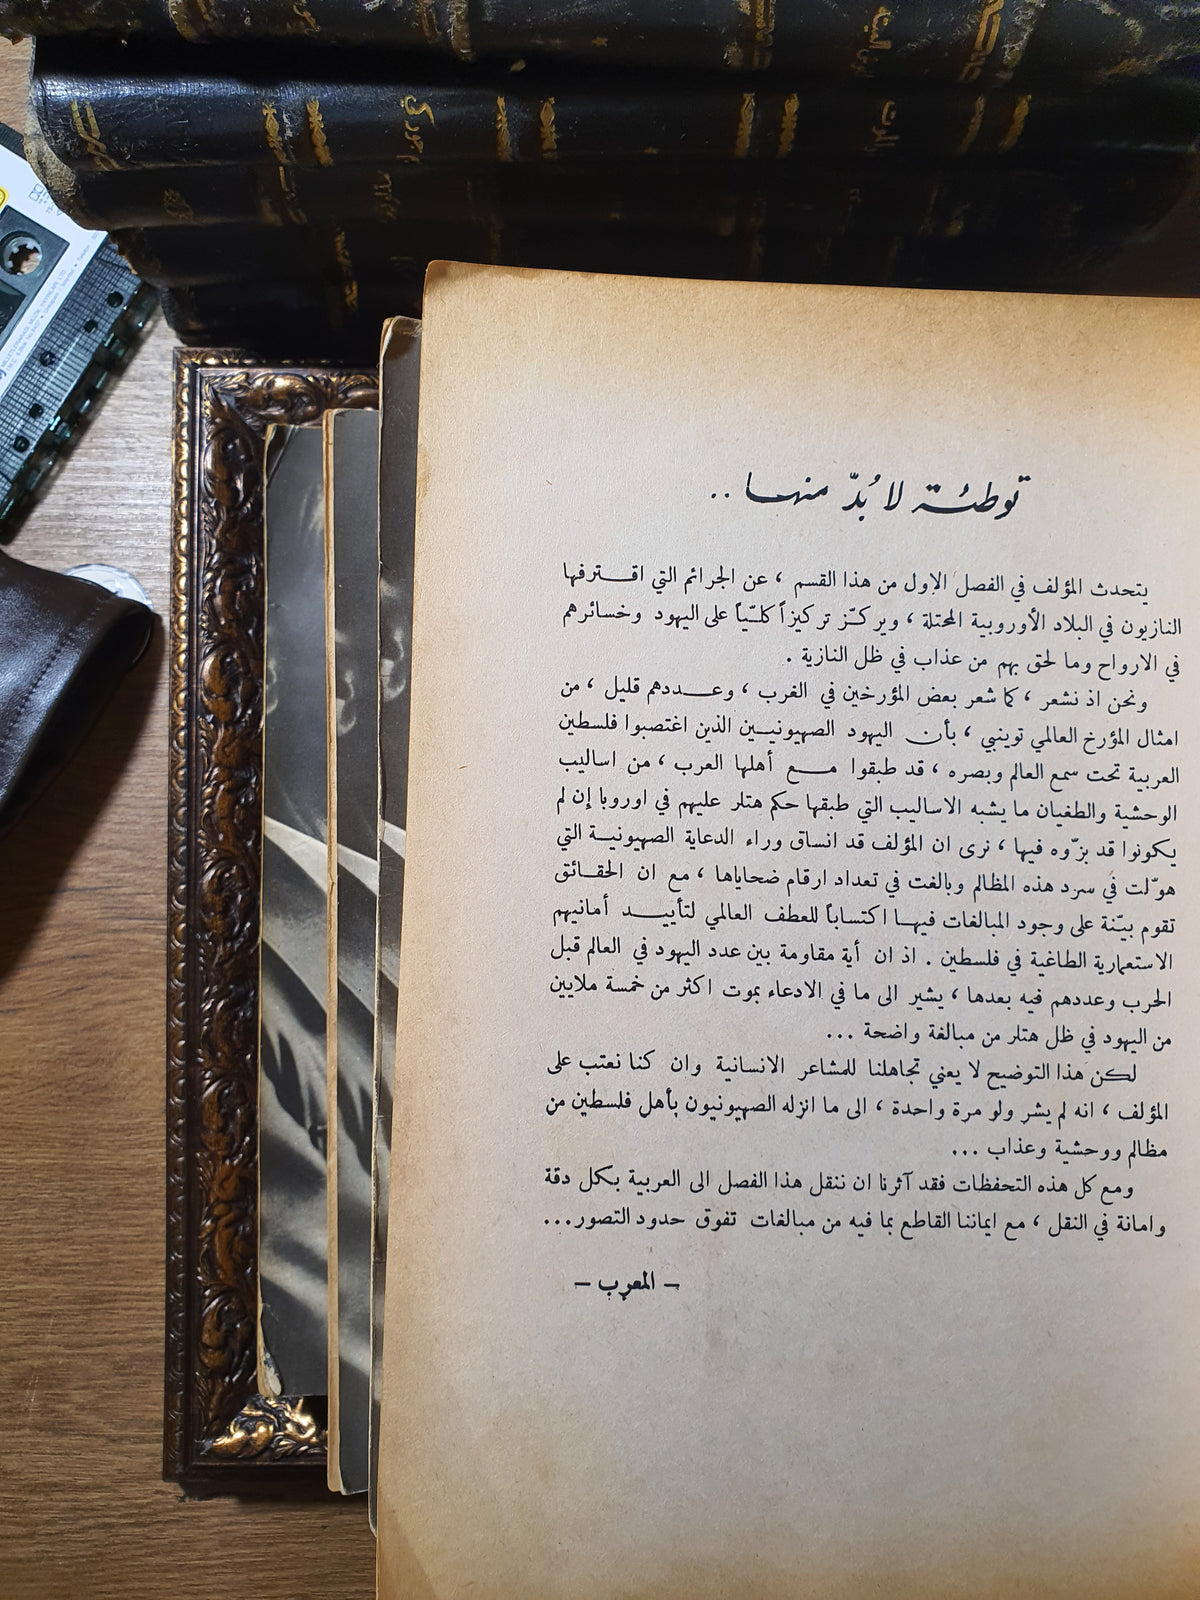 توطئة لا بُدّ منها ..
يتحدث المؤلف في الفصل الاول من هذا القسم ، عن الجرائم التي اقترفها
النازيون في البلاد الأوروبية المحتلة ، ويركّز تركيزاً كلّيّاً على اليهود وخسائرهم
في الارواح وما لحق بهم من عذاب في ظل النازية .
ونحن اذ نشعر ، كما شعر بعض المؤرخين في الغرب ، وعددهم قليل ، من
امثال المؤرخ العالمي توينبي ، بأن اليهود الصهيونيين الذين اغتصبوا فلسطين
العربية تحت سمع العالم وبصره ، قد طبقوا مع أهلها العرب ، من اساليب
الوحشية والطغيان ما يشبه الاساليب التي طبقها حكم هتلر عليهم في اوروبا إن لم
يكونوا قد بزّوه فيها ، نرى ان المؤلف قد انساق وراء الدعاية الصهيونية التي
هوّلت في سرد هذه المظالم وبالغت في تعداد ارقام ضحاياها ، مع ان الحقائق
تقوم بيّنة على وجود المبالغات فيها اكتساباً للعطف العالمي لتأييد أمانيهم
الاستعمارية الطاغية في فلسطين . اذ ان أية مقاومة بين عدد اليهود في العالم قبل
الحرب وعددهم فيه بعدها ، يشير الى ما في الادعاء بموت اكثر من خمسة ملايين
من اليهود في ظل هتلر من مبالغة واضحة ...
لكن هذا التوضيح لا يعني تجاهلنا للمشاعر الانسانية وان كنا نعتب على
المؤلف ، انه لم يشر ولو مرة واحدة ، الى ما انزله الصهيونيون بأهل فلسطين من
مظالم ووحشية وعذاب ...
ومع كل هذه التحفظات فقد آثرنا ان ننقل هذا الفصل الى العربية بكل دقة
وامانة في النقل ، مع ايماننا القاطع بما فيه من مبالغات تفوق حدود التصور...
– المعرب –